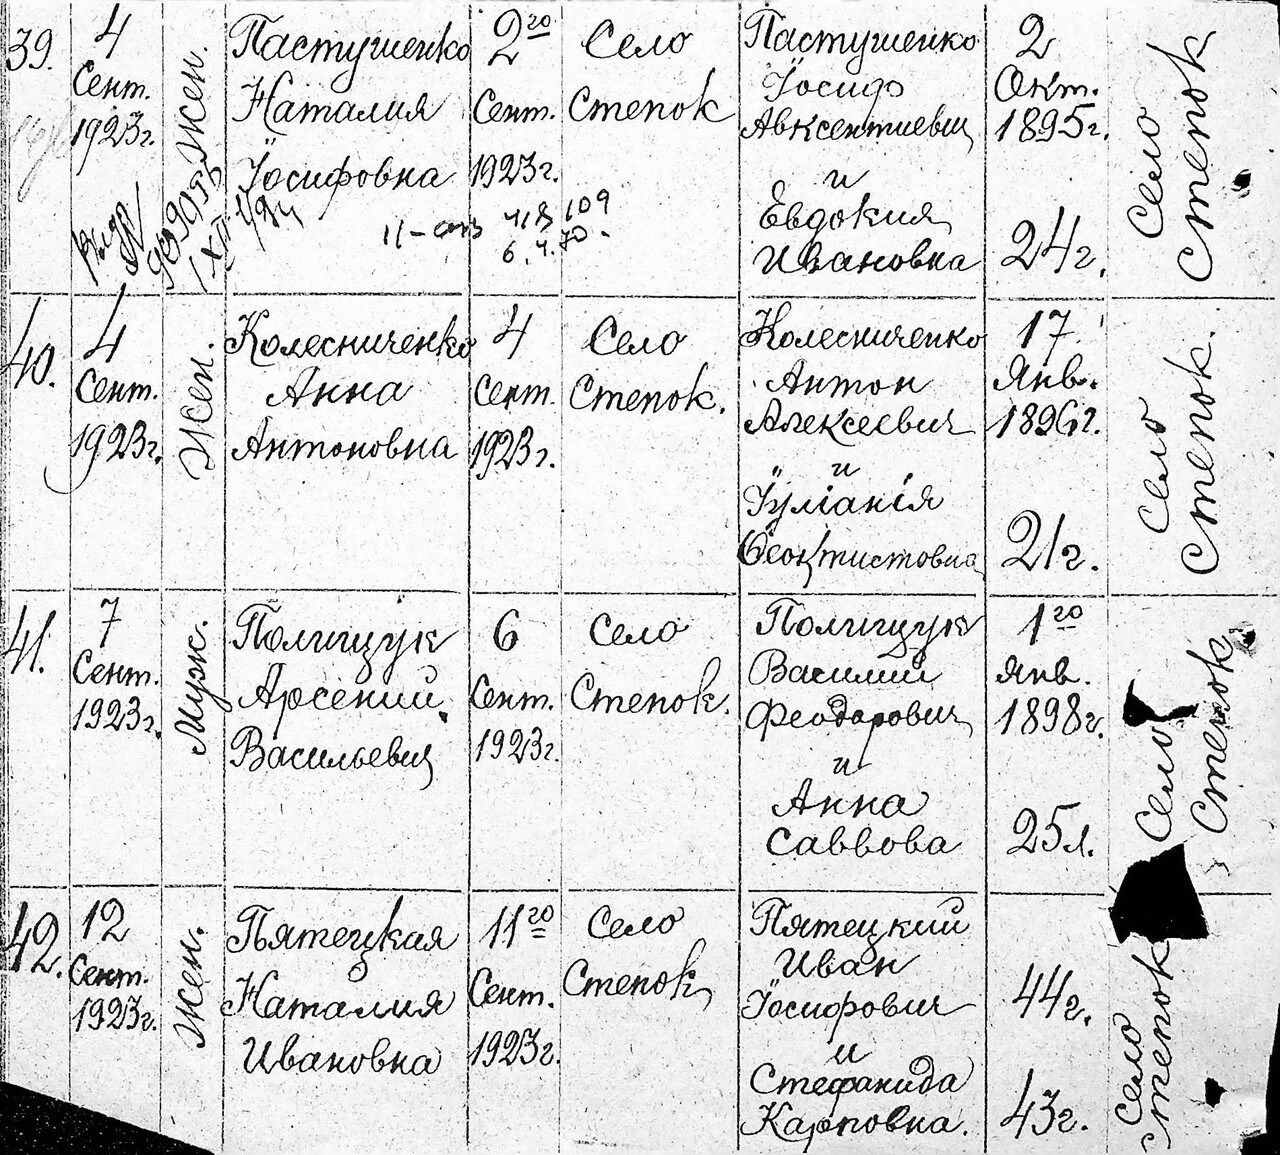 39.
4
Сент.
1923г.
Жен.
Пастушенко
Наталия
Іосифовна
2го
Сент.
1923г.
Село
Степок
Пастушенко
Іосиф
Авксентиевич
и
Евдокия
Ивановна
2
Окт.
1895г.
24г.
Село
Степок
11-
418109
6.4.70.
40.
4
Сент.
1923г.
Жен.
Колесниченко
Анна
Антоновна
4
Сент.
1923г.
Село
Степок.
Колесниченко
Антон
Алексеевич
и
Іуліанія
Феоктистовна
17
Янв.
1896г.
21г.
Село
Степок.
41.
7
Сент.
1923г.
Муж.
Полищук
Арсений
Васильевич
6
Сент.
1923г.
Село
Степок.
Полищук
Василий
Феодорович
и
Анна
Саввова
1го
Янв.
1898г.
25л.
Село
Степок
42.
12
Сент.
1923г.
Жен.
Пятецкая
Наталия
Ивановна
11го
Сент.
1923г.
Село
Степок
Пятецкий
Иван
Іосифович
и
Стефанида
Карповна.
44г.
43г.
Село
Степок